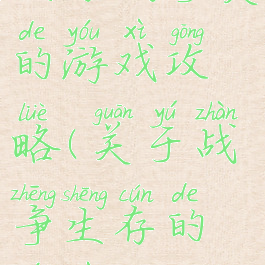 de yóu xì gōng
的游戏攻
lüè guān yú zhàn
略(关于战
zhēng shēng cún de
争生存的